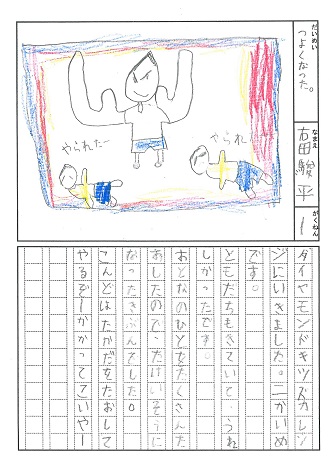 だいめい
つよくなった。
なまえ
右田駿平
がくねん
一
やられたー
やられ
ダイヤモンドキッズカレッ
ジにいきました。二かいめ
です。
ともだちもきていて、うれ
しかったです。
おとなのひとをたくさんた
おしたので、
なったきぶんでした。
こんどはたかだをたおして
やるぞーかかってこいやー